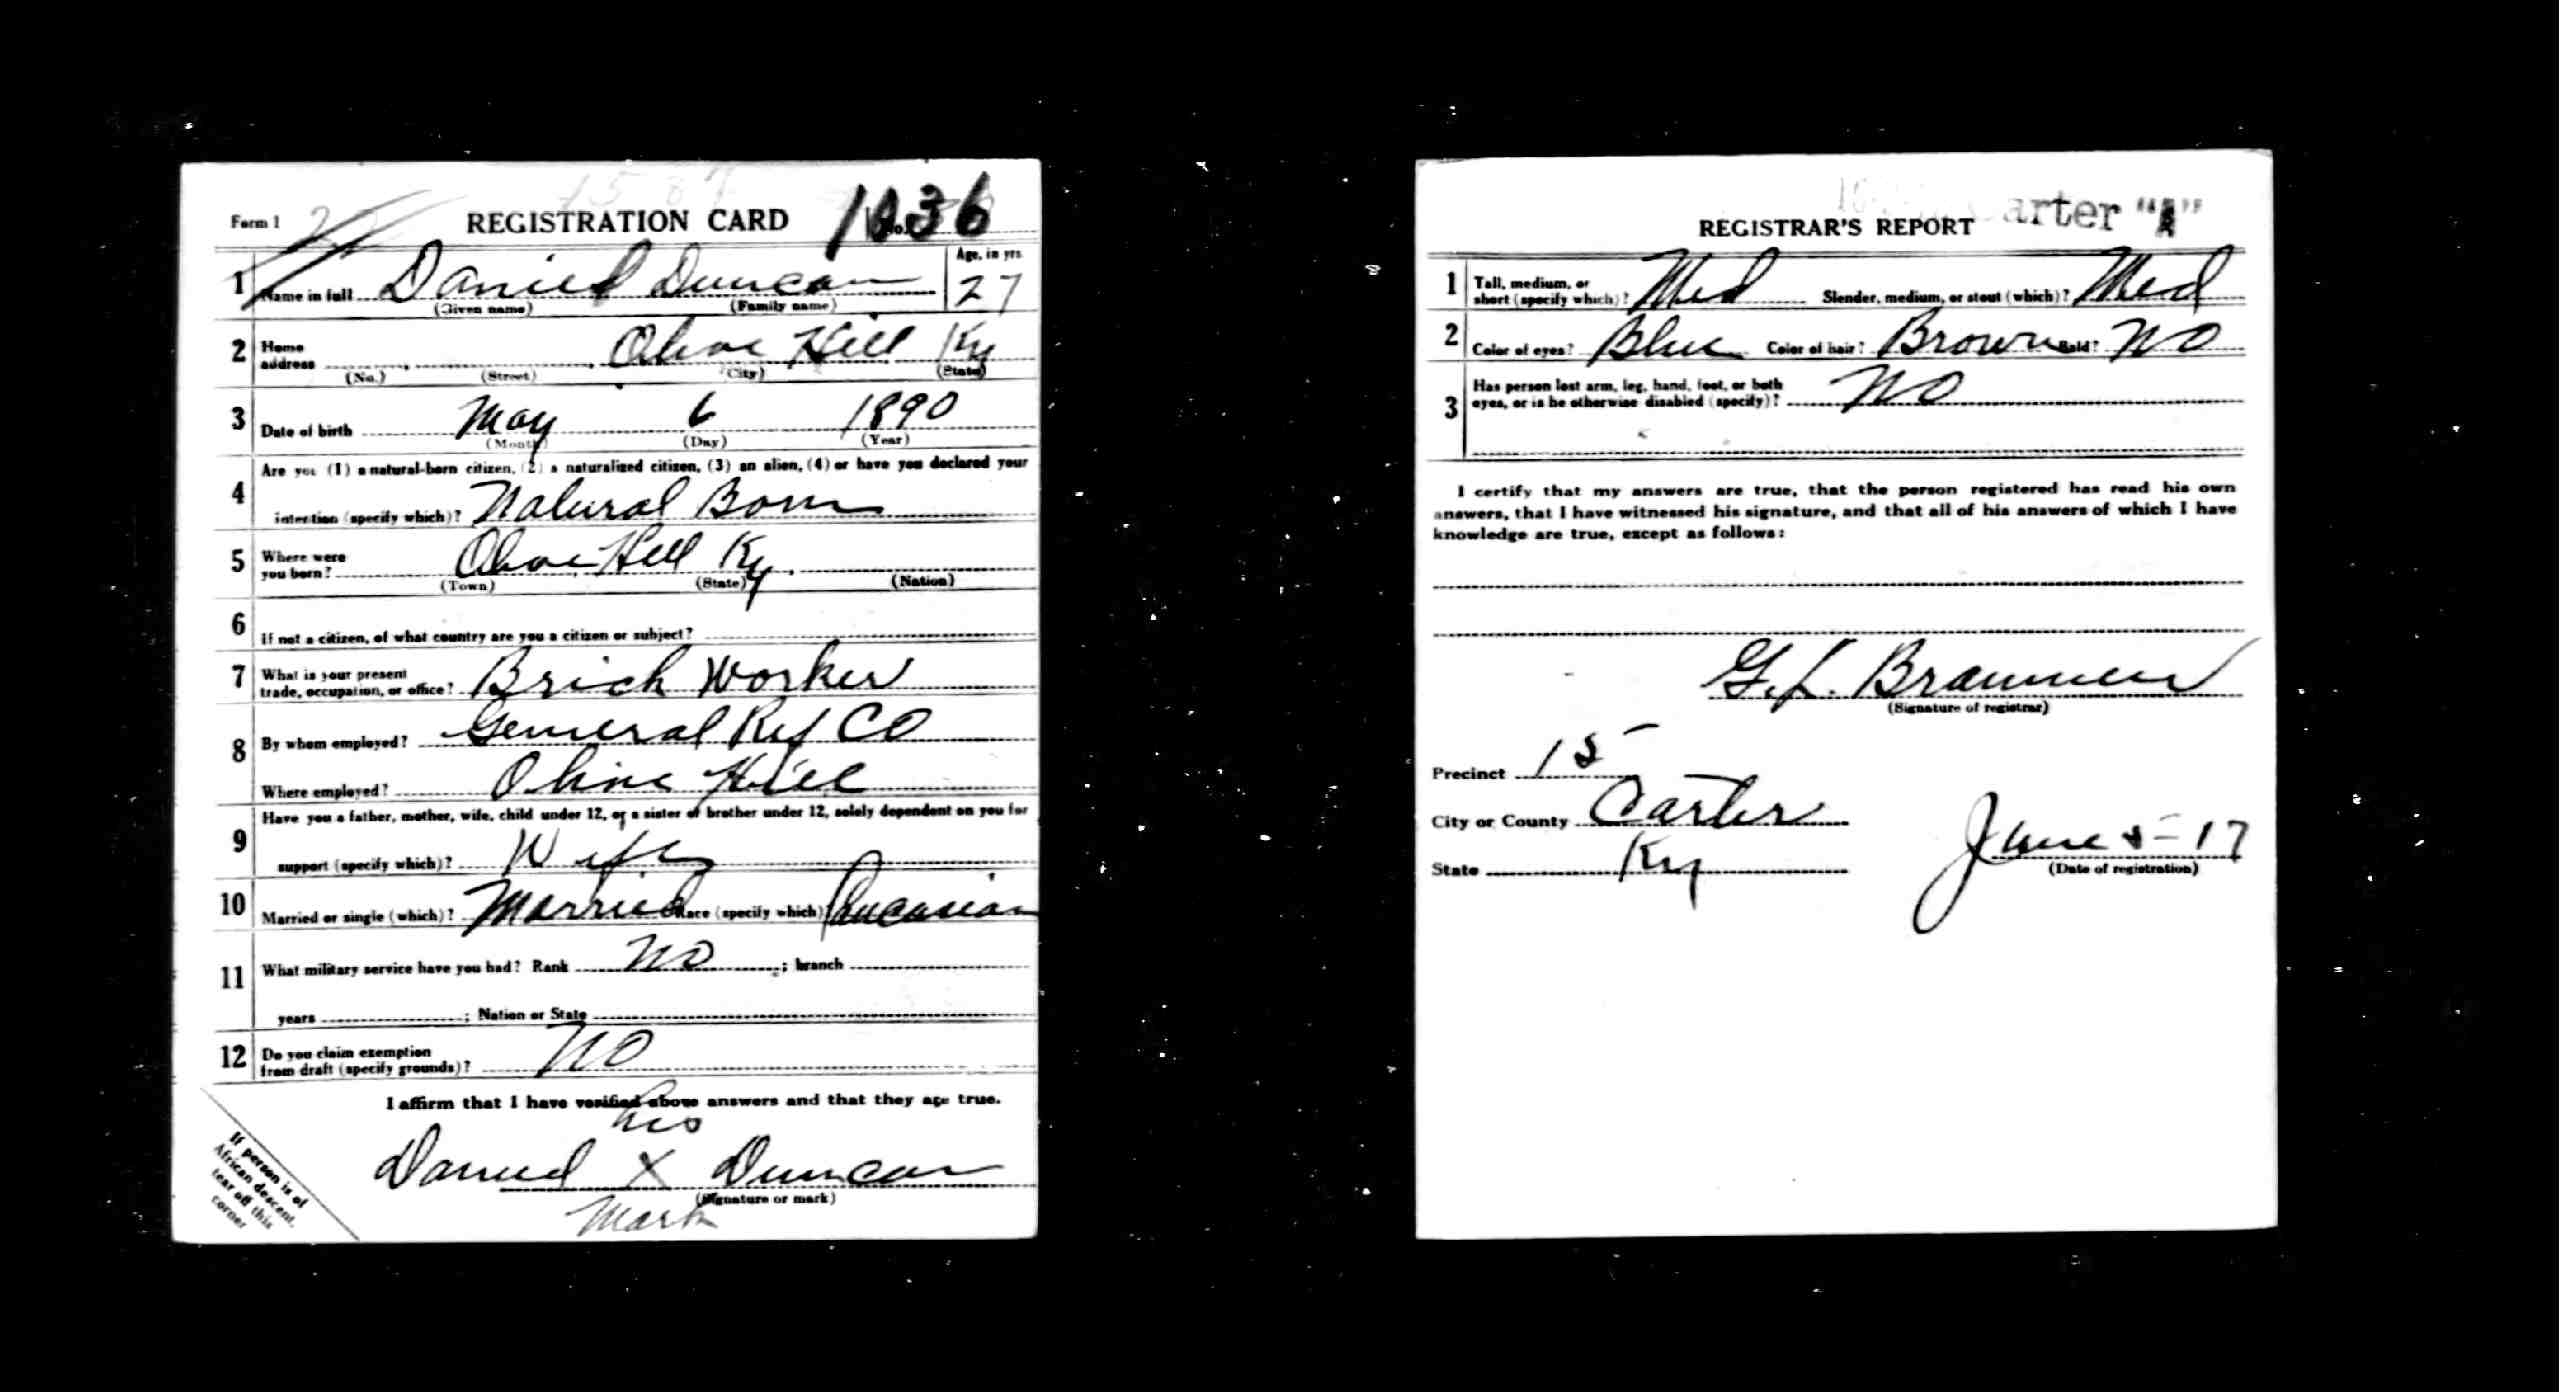 Form 1
REGISTRATION CARD No. 1036
1 Name in full Daniel Duncan Age, in yrs. 27
(Given name) (Family name)
2 Home address Olive Hill Ky
(No.) (Street) (City) (State)
3 Date of birth May 6 1890
(Month) (Day) (Year)
Are you (1) a natural-born citizen, (2) a naturalized citizen, (3) an alien, (4) or have you declared your
4 intention (specify which)? Natural Born
5 Where were you born? Olive Hill Ky.
(Town) (State) (Nation)
6 If not a citizen, of what country are you a citizen or subject?
7 What is your present trade, occupation, or office? Brick Worker
8 By whom employed? General Ref CO
Where employed? Olive Hill
Have you a father, mother, wife, child under 12, or a sister or brother under 12, solely dependent on you for
9 support (specify which)? Wife
10 Married or single (which)? Married Race (specify which)? Caucasian
11 What military service have you had? Rank NO ; branch
years ; Nation or State
12 Do you claim exemption from draft (specify grounds)? NO
I affirm that I have verified above answers and that they are true.
his
Daniel X Duncan
(Signature or mark)
Mark
If person is of
African descent,
tear off this
corner
arter "A"
REGISTRAR'S REPORT
1 Tall, medium, or short (specify which)? Med Slender, medium, or stout (which)? Med
2 Color of eyes? Blue Color of hair? Brown Bald? NO
3 Has person lost arm, leg, hand, foot, or both eyes, or is he otherwise disabled (specify)? NO
I certify that my answers are true, that the person registered has read his own
answers, that I have witnessed his signature, and that all of his answers of which I have
knowledge are true, except as follows:
G.L. Brammer
(Signature of registrar)
Precinct 15
City or County Carter
State Ky
June 5-17
(Date of registration)